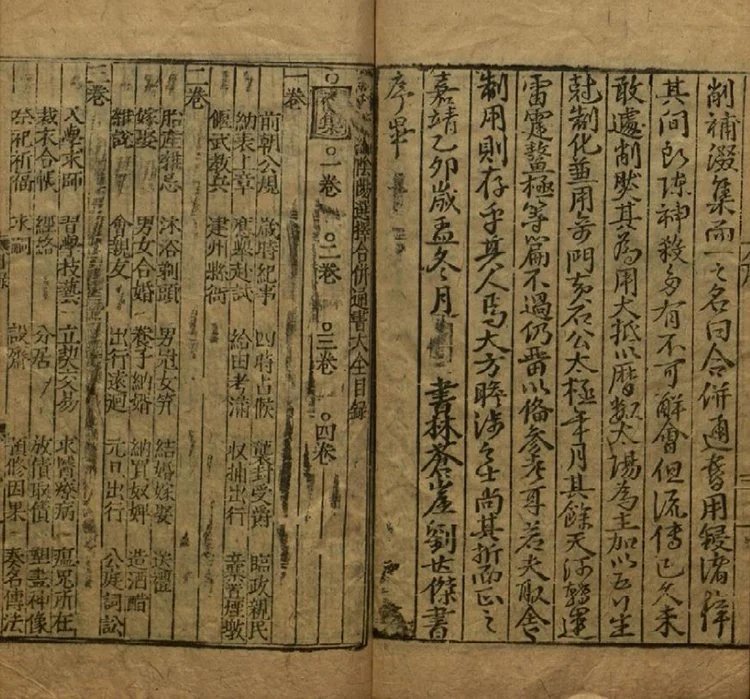 削補濈集而一之名曰合併通書用鋟諸梓
其间即諸神殺多有不可解會但流傳已久未
敢遽削然其為用大抵以曆數太陽為主加以五行生
尅制化並用奇門黄石公太極年月其餘天河轉運
雷霆鰲極等篇不過仍舊以俻參考耳若夫取舍
制用則存乎其人焉大方瞻涉之士尚其折而正之
嘉靖乙卯歲孟冬月書林蒼崖劉世傑書
序畢
陰陽選擇合併通書大全目錄
集 一卷 二卷 三卷 四卷
一卷
前朝公規 歲時紀事 四時占候 襲封受爵 臨政親民
幼表上章 應舉赴試 給由考滿 收捕出行 煙墩
偃武教兵 建州縣衙
二卷
胎產雜忌 沐浴剃頭 男冠女笄 結婚嫁娶 送禮
嫁娶 男女合婚 養子納婿 納買奴婢 造酒醋
雜說 會親友 出行遠迴 元日出行 公庭詞訟
三卷
入學求師 習學技藝 立契交易 求醫療病 瘟鬼所在
裁衣合帳 經絡 分居 放債取債 塑畫神像
祭祀祈福 求嗣 設齋 預修因果 奏名傳法